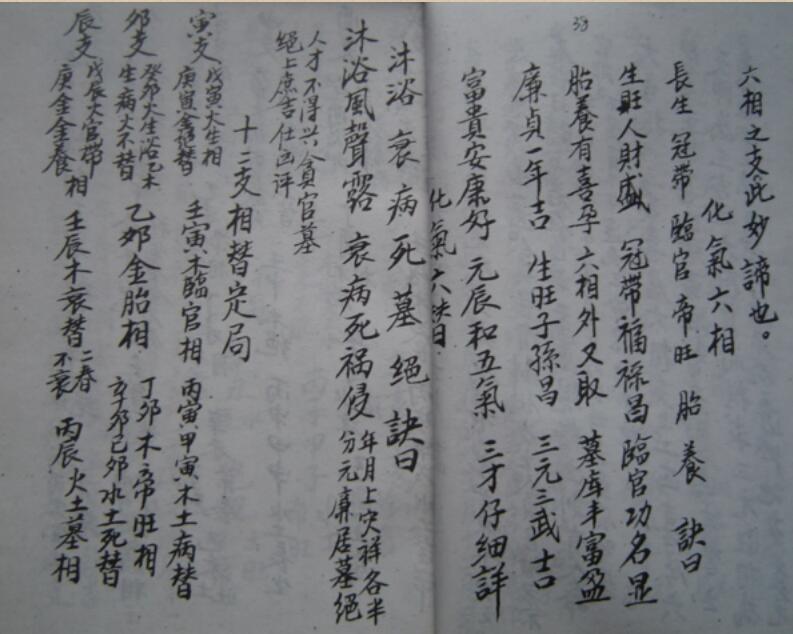 33
六相之支此妙諦也。
化氣六相
長生 冠帶 臨官 帝旺 胎 養 訣曰
生旺人財盛 冠帶福祿昌 臨官功名显
胎養有喜孕 六相外又取 墓库丰富盈
廉貞一年吉 生旺子孫昌 三元三武吉
富貴安康好 元辰和五氣 三才仔細詳
化氣六
沐浴 衰 病 死 墓 绝 訣曰
沐浴風聲露 衰病死祸侵 年月上灾祥各半
分元廉居墓绝
人才不得兴貪官墓
绝上庶吉仕
十二支相替定局
寅支 戊寅火生相
庚寅金绝替 壬寅木臨官相 丙寅甲寅木土病替
卯支 癸卯火生浴乙木
生病火不替 乙卯金胎相 丁卯木帝旺相
辛卯己卯水土死替
辰支 戊辰火官帶
庚金金養相 壬辰木衰替 二春
不衰 丙辰火土墓相